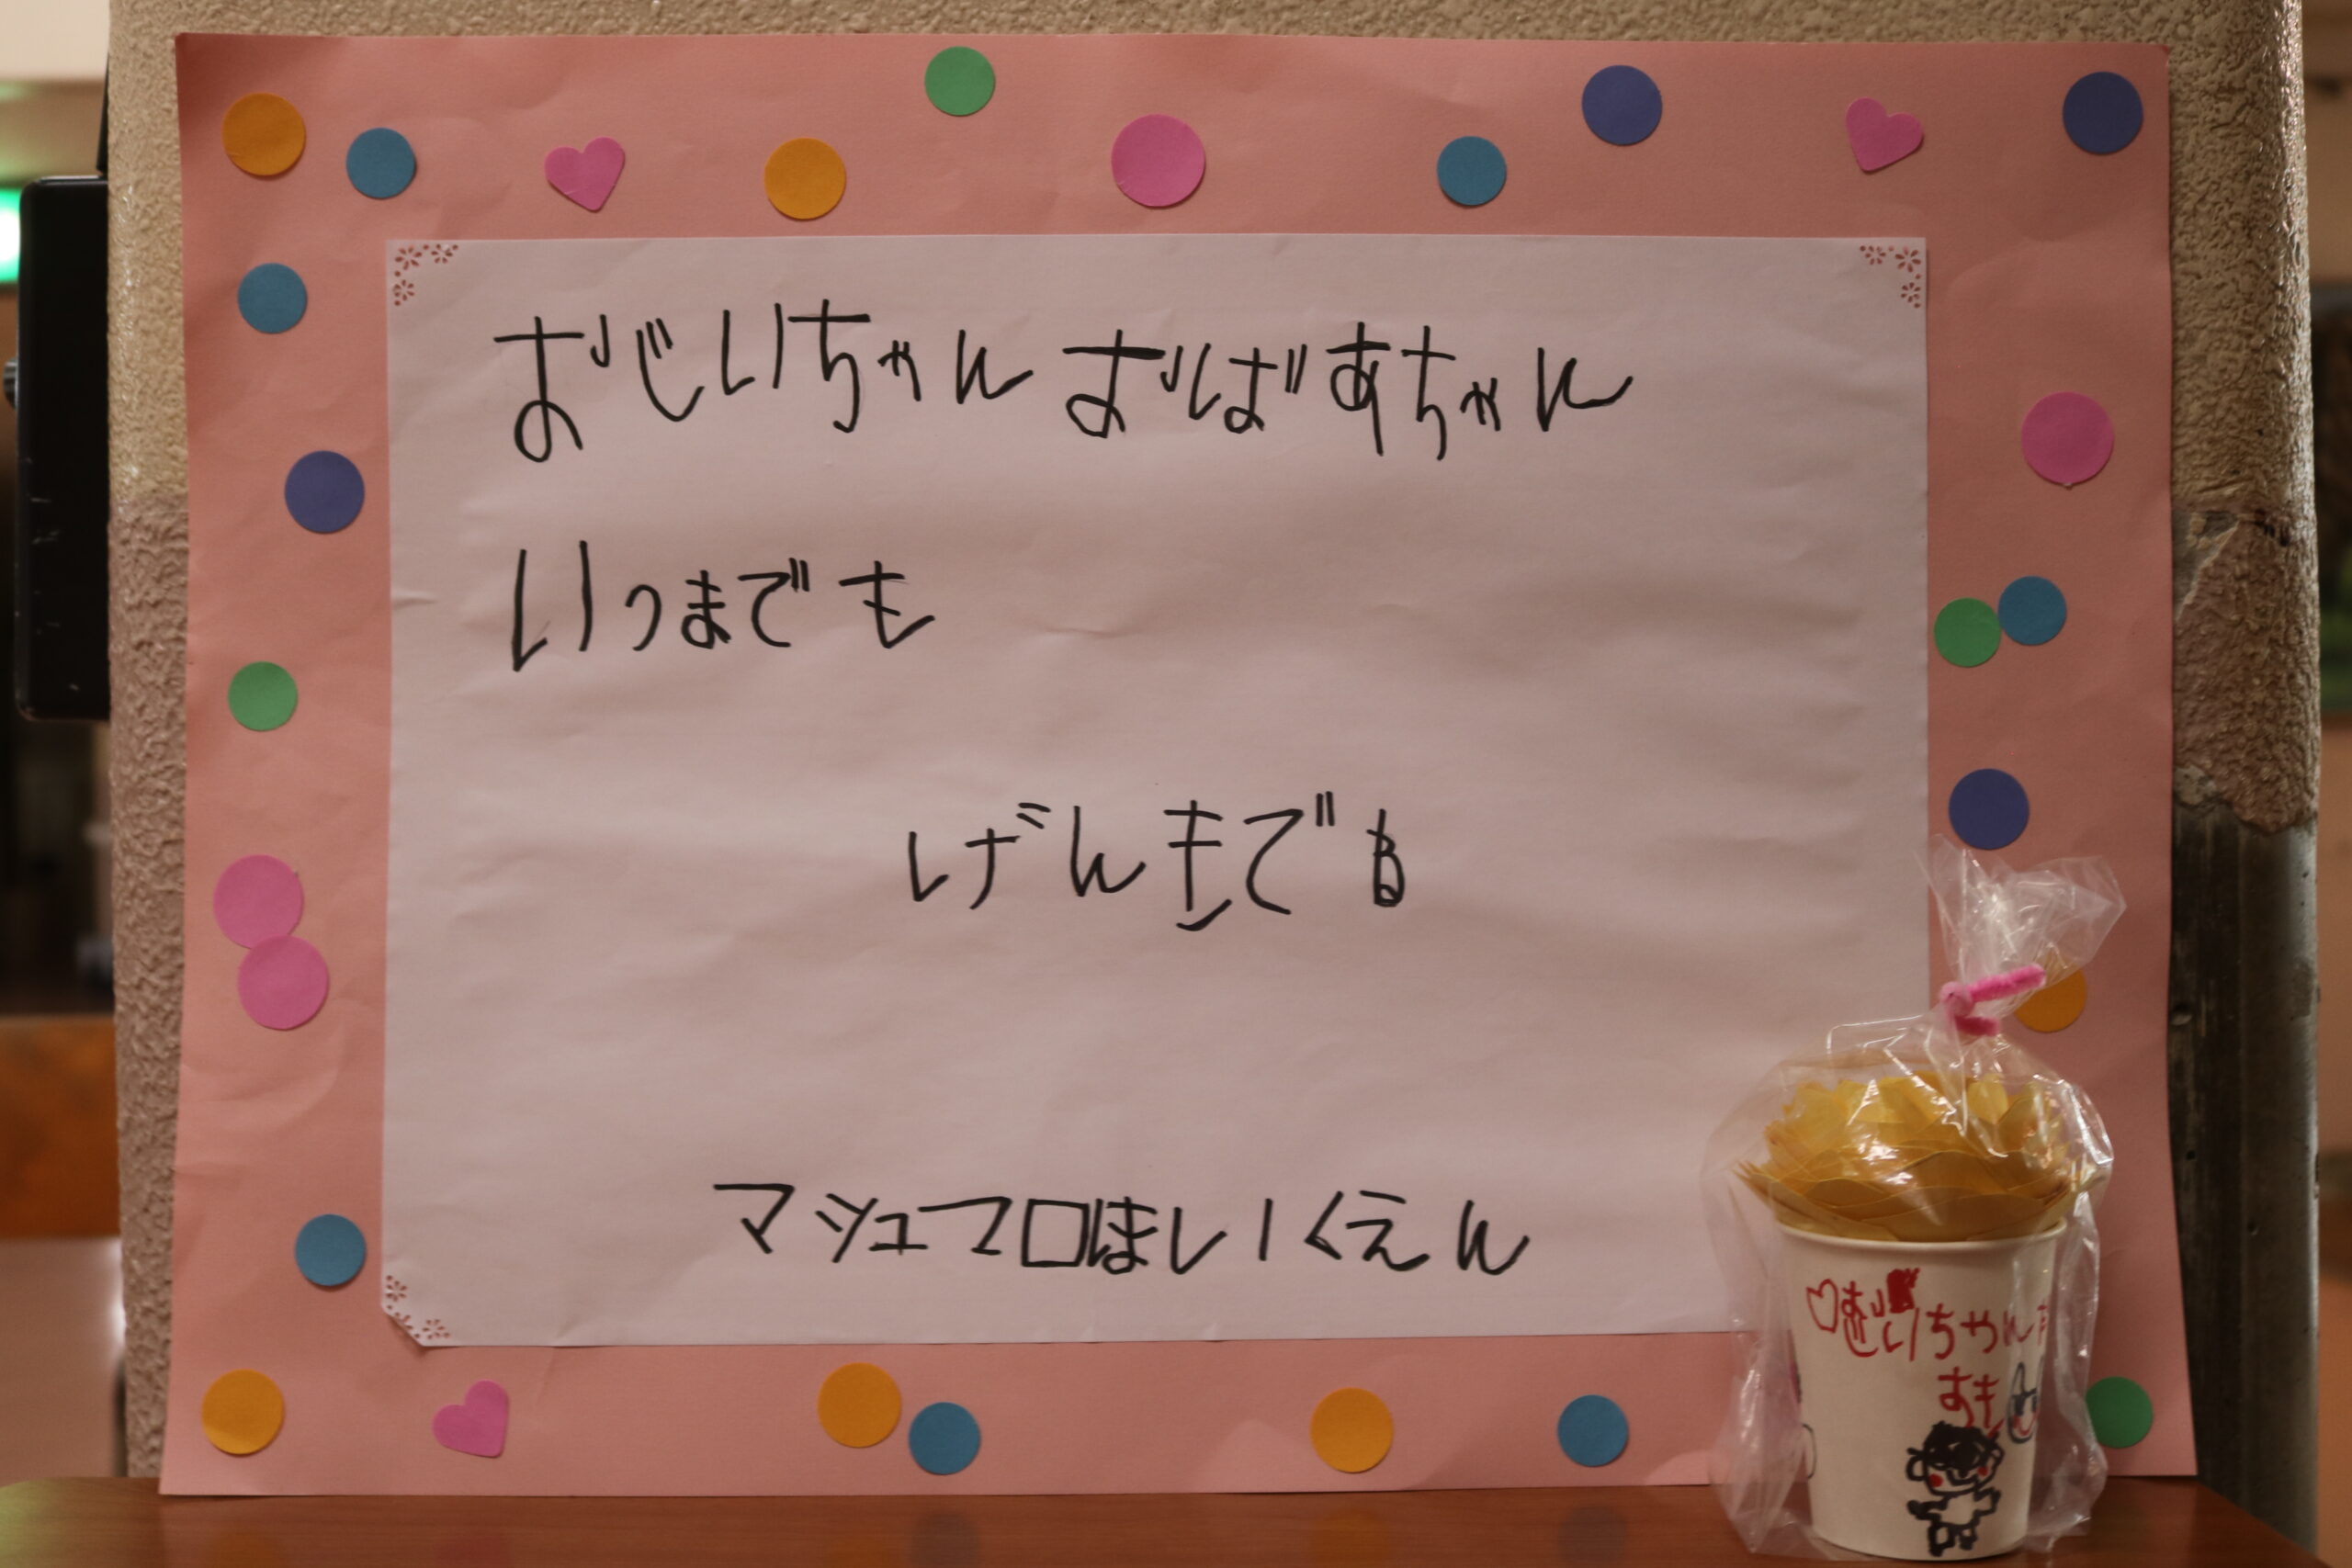 おじいちゃん おばあちゃん
いつまでも
げんきでね
マシュマロほいくえん
おじいちゃん